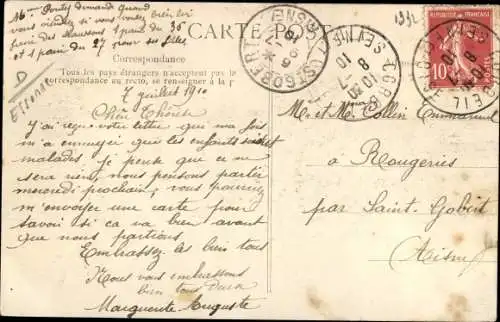 Mr Poutez demande quand
vous viendez si vous voulez bien lui
faire des chaussons 1 paire du 36
et 1 paire du 27 pour ses filles
CARTE POSTALE
Correspondance
Tous les pays étrangers n'acceptent pas le
correspondance au recto, se renseigner à la p
D
Essonne
7 juillet 1910
Chère Thérèse
J'ai reçue votre lettre qui ma fais
m a ennuyer que les enfants soient
malades. Je pense que ce ne
sera rien, nous pensons partir
mercredi prochain; vous pourriez
m'envoyer une carte pour
savoir si ca va bien avant
que nous partions.
Embrassez les bien tous
Nous vous embrassons
bien tous deux
Marguerite Auguste
1332
REPUBLIQUE FRANÇAISE
10
CORBEIL
8 -7 10
Mr et Mme Collin Emmanuel
à Rougeries
par Saint-Gobert
Aisne